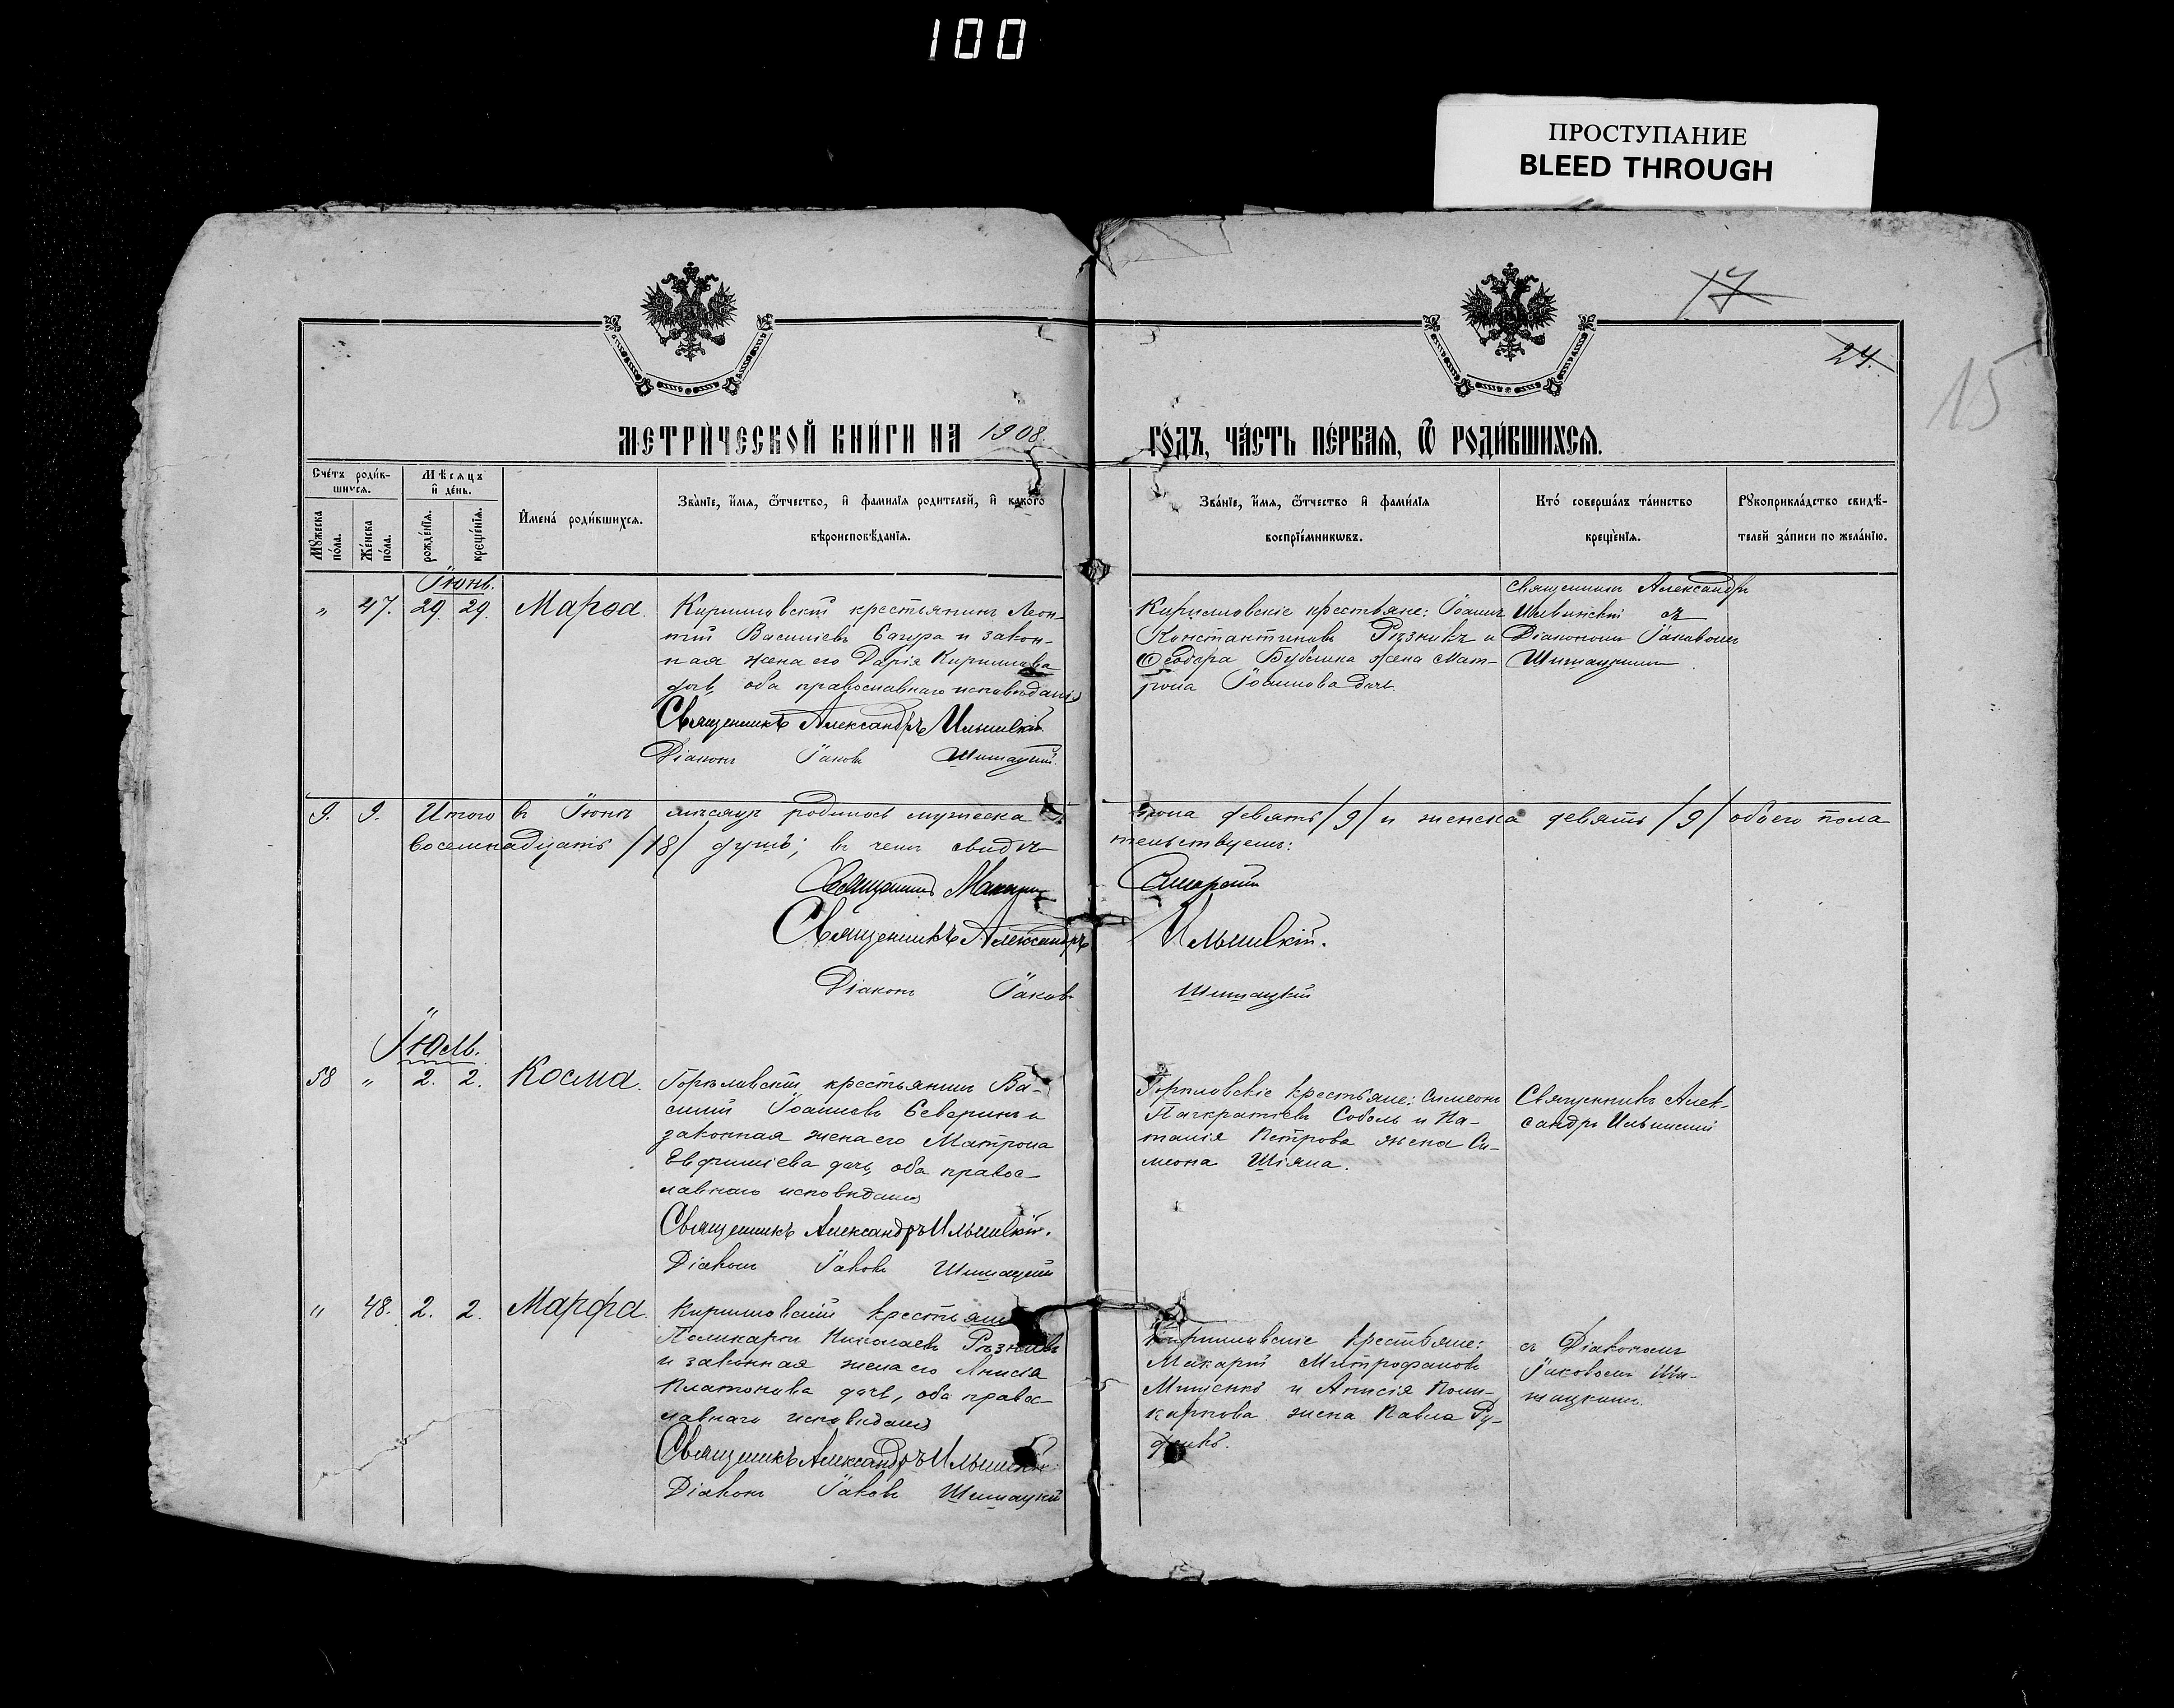 100
ПРОСТУПАНИЕ
BLEED THROUGH
17
24.
15
МЕТРИЧЕСКОЙ КНИГИ НА 1908 ГОДЪ, ЧАСТЬ ПЕРВАЯ, Ѿ РОДИВШИХСЯ.
Счетъ родив-
шихся.
Мѣсяцъ
и день.
Имена родившихся.
Званіе, имя, ѿчество, и фамилія родителей, и какого
вѣроисповѣданія.
Званіе, имя, ѿчество и фамилія
воспріемниковъ.
Кто совершалъ таинство
крещенія.
Рукоприкладство свидѣ-
телей записи по желанію.
Мужеска пола.
Женска пола.
рожденія.
крещенія.
Іюнь.
„ 47. 29. 29. Марѳа.
Кирилловскій крестьянинъ Леон-
тій Василіевъ Багура и закон-
ная жена его Дарія Кириллова
дочь, оба православнаго исповѣданія
Священникъ Александръ Ильинскій
Діаконъ Іаковъ Шишацкій.
Кирилловскіе крестьяне: Іоаннъ
Константиновъ Рѣзникъ и
Ѳеодора Бублика жена Мат-
рона Іоаннова дочь.
Священникъ Александръ
Ильинскій съ
Діакономъ Іаковомъ
Шишацкимъ
9. 9. Итого въ Іюнѣ мѣсяцѣ родилось мужеска пола девять /9/ и женска девять /9/ обоего пола
восемнадцать /18/ душъ; въ чемъ свидѣ-
тельствуемъ:
Священникъ
Священникъ Александръ Ильинскій.
Діаконъ Іаковъ Шишацкій
Іюль.
58 „ 2. 2. Косма.
Горѣловскій крестьянинъ Ва-
силій Іоанновъ Северинъ и
законная жена его Матрона
Евфиміева дочь, оба правос-
лавнаго исповѣданія
Священникъ Александръ Ильинскій.
Діаконъ Іаковъ Шишацкій
Горѣловскіе крестьяне: Симеонъ
Панкратіевъ Соболь и На-
талія Петрова жена Си-
меона Шіяна.
Священникъ Алек-
сандръ Ильинскій
„ 48. 2. 2. Марфа.
Кирилловскій крестьянинъ
Поликарпъ Николаевъ Рѣзникъ
и законная жена его Анисія
Платонова дочь, оба правос-
лавнаго исповѣданія
Священникъ Александръ Ильинскій
Діаконъ Іаковъ Шишацкій
Кирилловскіе крестьяне:
Макарій Митрофановъ
и Анисія Поли-
карпова жена Павла Ру-
денко.
съ Діакономъ
Іаковомъ Ши-
шацкимъ.